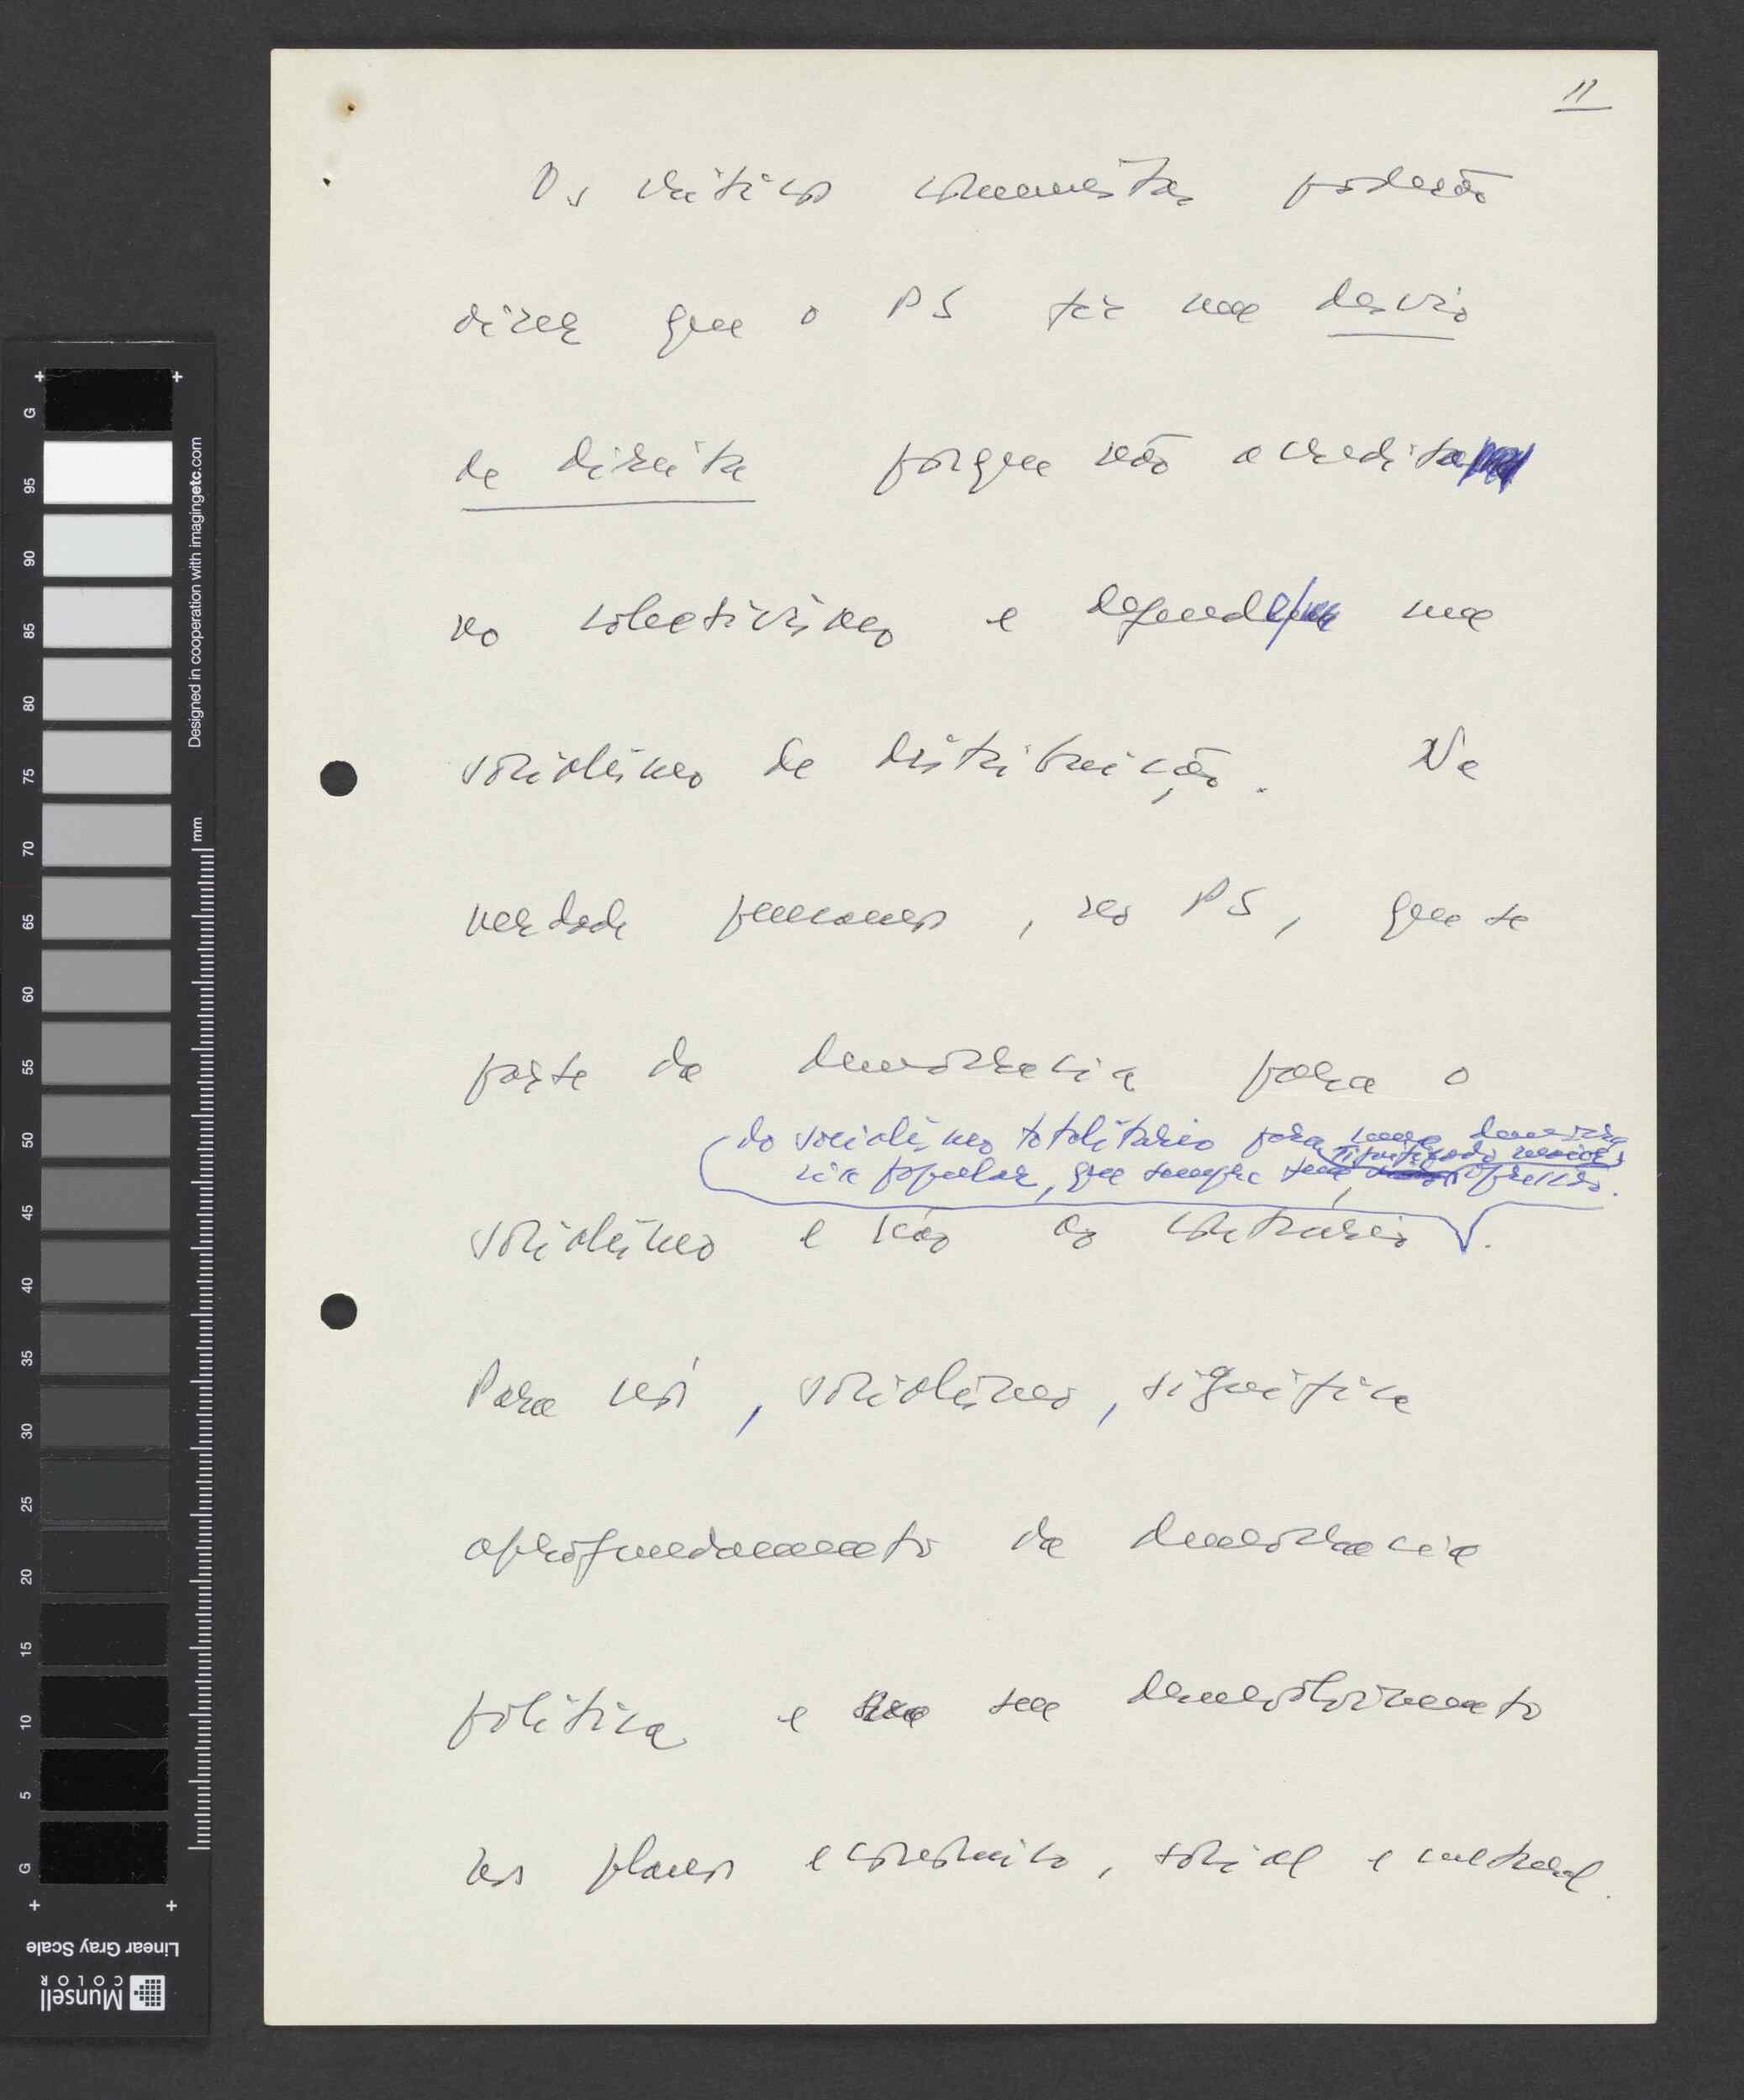 11
Os críticos comunistas poderão
dizer que o PS tem um desvio
de direita porque não acredita
no colectivismo e defende um
socialismo de distribuição. Na
verdade pensamos, no PS, que se
parte da democracia para o
do socialismo totalitário para uma democra
cia popular, que sempre significado maior opressão.
socialismo e não ao contrário.
Para nós, socialismo, significa
aprofundamento da democracia
política e seu desenvolvimento
nos planos económico, social e cultural.
G
95
90
85
80
75
70
65
60
55
50
45
40
35
30
25
20
15
10
5
G
mm
Designed in cooperation with imagingetc.com
Linear Gray Scale
Munsell
COLOR